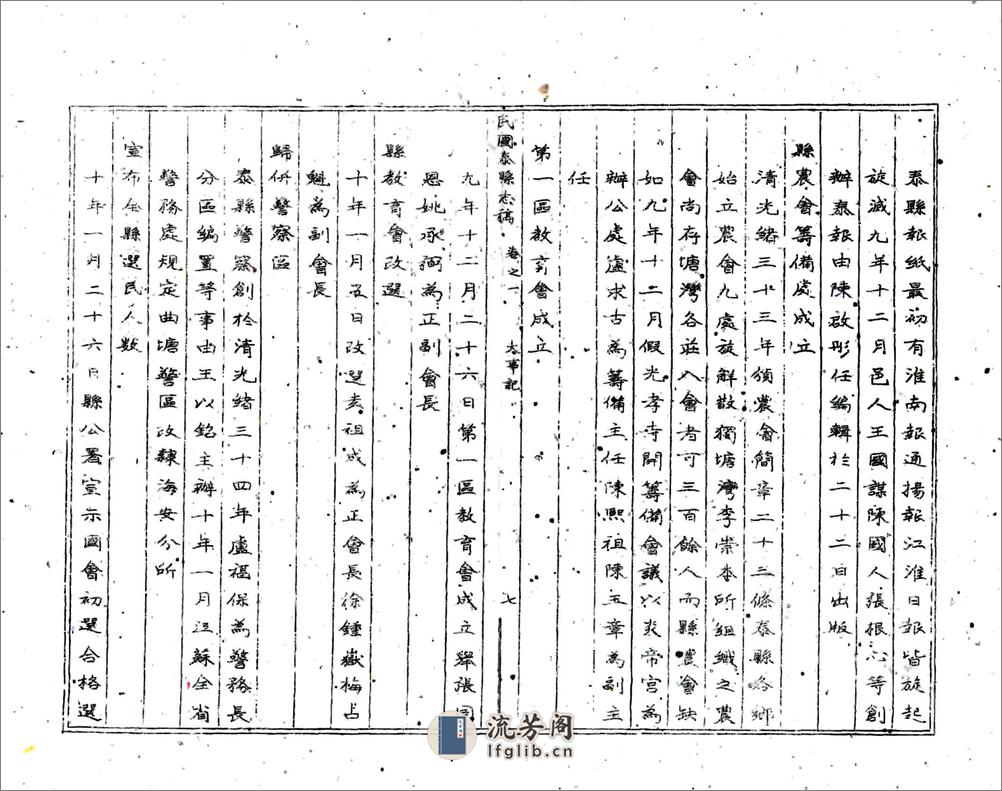 泰縣報紙最初有淮南報通揚報江淮日報皆旋起
旋滅九年十二月邑人王國謀陳國人張根心等創
辦泰報由陳啟彤任編輯於二十二日出版
縣農會籌備處成立
清光緒三十三年頒農會簡章二十三條泰縣各鄉
始立農會九處旋解散獨塘灣李崇本所組織之農
會尚存塘灣各莊入會者可三百餘人而縣農會缺
如九年十二月假光孝寺開籌備會議以炎帝宮為
辦公處盧求古為籌備主任陳熙祖陳玉章為副主
任
第一區教育會成立
民國泰縣志稿 卷之一 大事記 七
九年十二月二十六日第一區教育會成立舉張同
恩姚承弼為正副會長
縣教育會改選
十年一月五日改選袁祖成為正會長徐鍾嶽梅占
魁為副會長
歸併警察區
泰縣警察創於清光緒三十四年盧福保為警務長
分區編置等事由王以銘主辦十年一月江蘇全省
警務處規定曲塘警區改隸海安分所
宣布全縣選民人數
十年一月二十六日縣公署宣示國會初選合格選
流芳阁
lfglib.cn